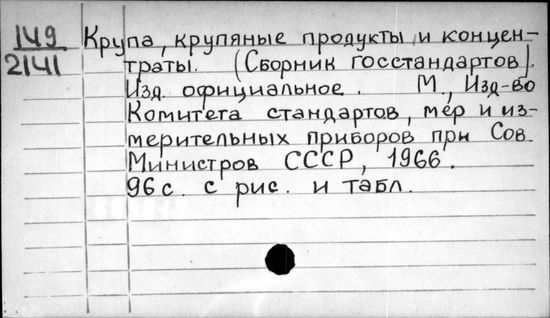 149 Крупа, крупяные продукты и концен-
2141 траты. (Сборник госстандартов).
Изд. официальное. М., Изд-во
Комитета стандартов, мер и из-
мерительных приборов при Сов.
Министров СССР, 1966.
96 с. с рис. и табл.